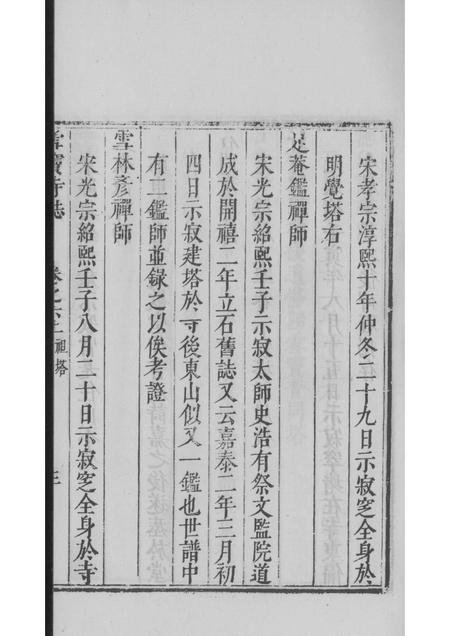 宋孝宗淳熙十年仲冬二十九日示寂窆全身於
明覺塔右
足菴鑑禪師
宋光宗紹熙壬子示寂太師史浩有祭文監院道
成於開禧二年立石舊誌又云嘉泰二年三月初
四日示寂建塔於寺後東山似又一鑑也世譜中
有二鑑師並錄之以俟考證
雪林彥禪師
宋光宗紹熙壬子八月二十日示寂窆全身於寺
雪竇寺誌 卷之六上 祖塔 三